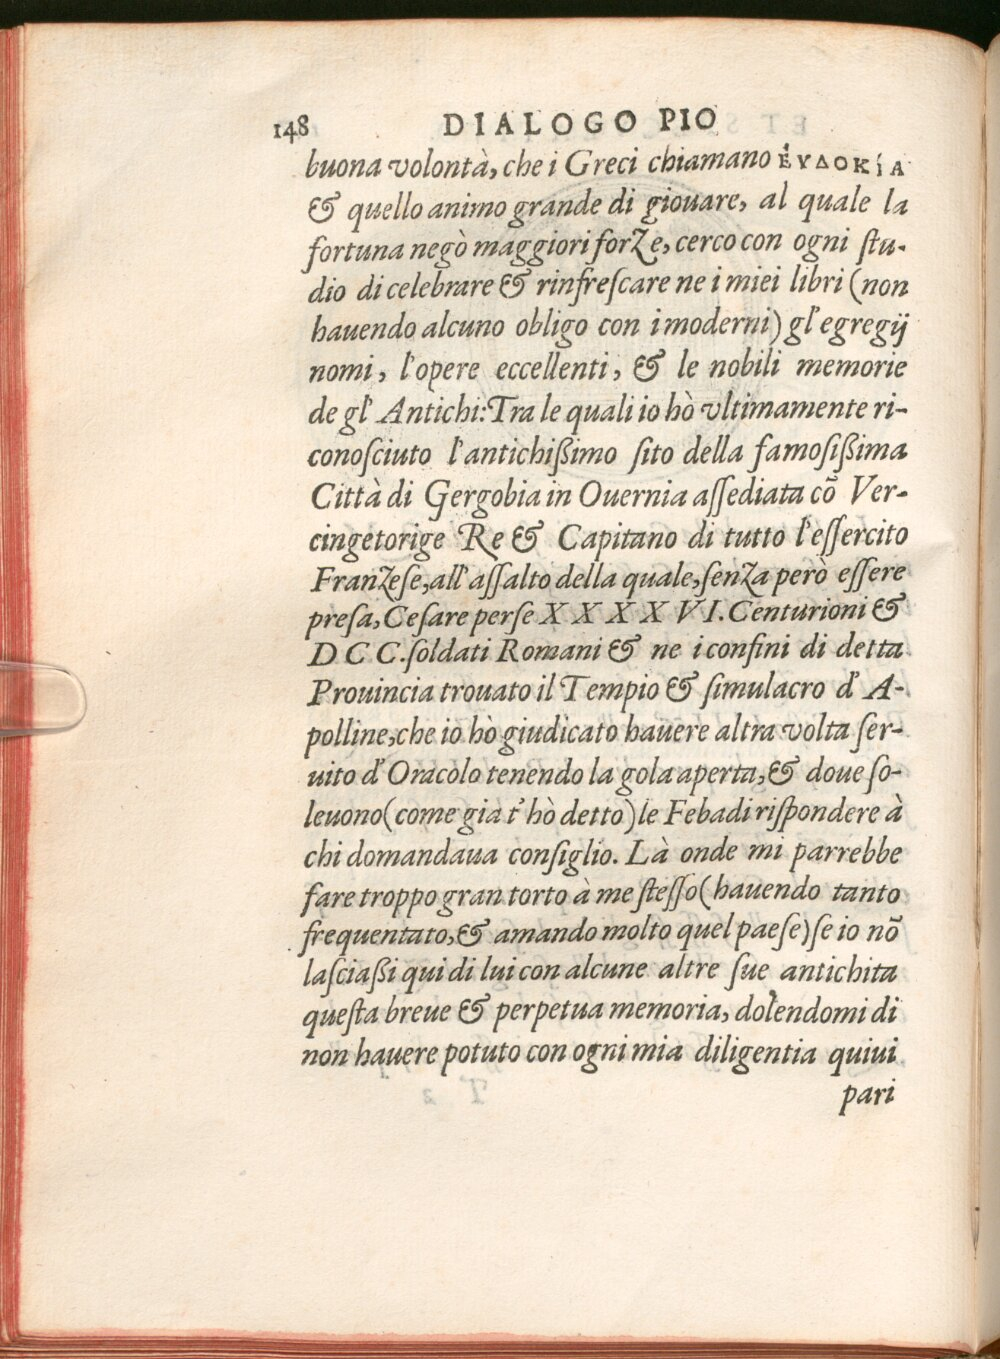 148 DIALOGO PIO
buona volontà, che i Greci chiamano ἐυδοκία
& quello animo grande di giouare, al quale la
fortuna negò maggiori forze, cerco con ogni ſtu-
dio di celebrare & rinfreſcare ne i miei libri (non
hauendo alcuno obligo con i moderni) gl'egregij
nomi, l'opere eccellenti, & le nobili memorie
de gl' Antichi: Tra le quali io hò vltimamente ri-
conoſciuto l'antichißimo ſito della famoſißima
Città di Gergobia in Ouernia aſſediata cõ Ver-
cingetorige Re & Capitano di tutto l'eſſercito
Franzeſe, all'aſſalto della quale, ſenza però eſſere
preſa, Ceſare perſe XXXXVI. Centurioni &
DCC. ſoldati Romani & ne i confini di detta
Prouincia trouato il Tempio & ſimulacro d' A-
polline, che io hò giudicato hauere altra volta ſer-
uito d' Oracolo tenendo la gola aperta, & doue ſo-
leuono (come gia t' hò detto) le Febadi riſpondere à
chi domandaua conſiglio. Là onde mi parrebbe
fare troppo gran torto à me ſteſſo (hauendo tanto
frequentato, & amando molto quel paeſe) ſe io nõ
laſciaßi qui di lui con alcune altre ſue antichita
queſta breue & perpetua memoria, dolendomi di
non hauere potuto con ogni mia diligentia quiui
pari